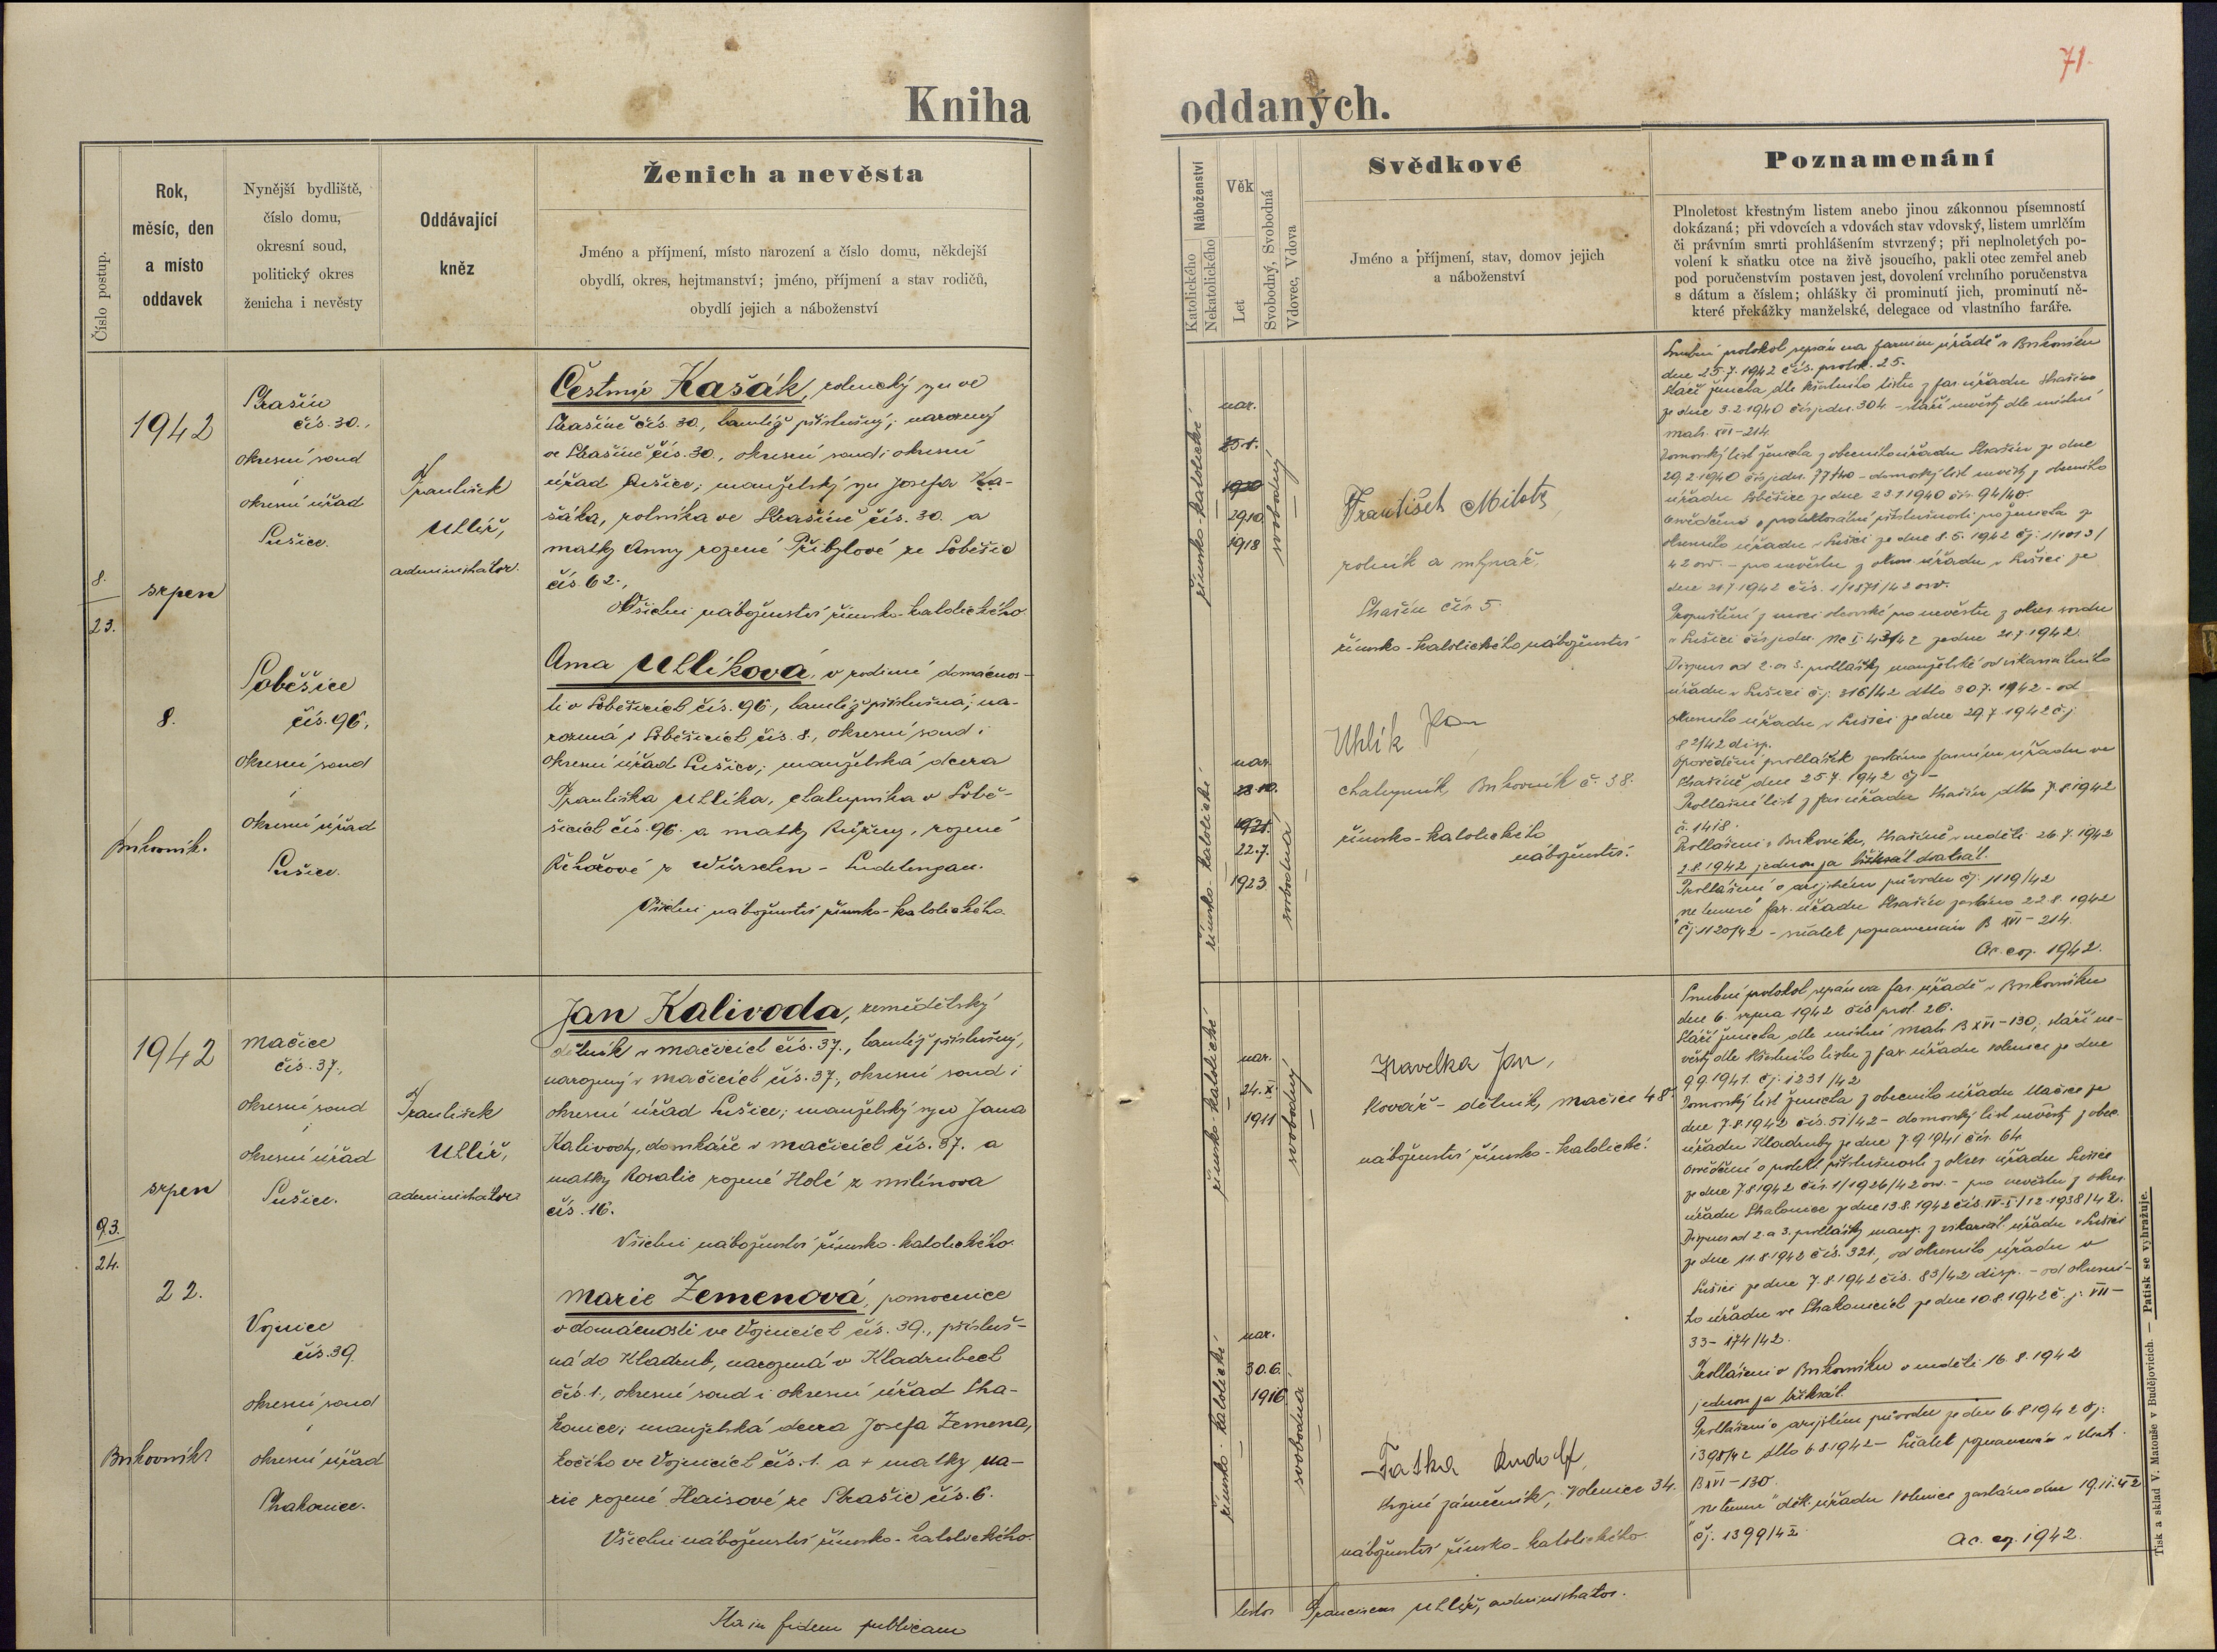 71.
Kniha oddaných.
Číslo postup.
Rok,
měsíc, den
a místo
oddavek
Nynější bydliště,
číslo domu,
okresní soud,
politický okres
ženicha i nevěsty
Oddávající
kněz
Ženich a nevěsta
Jméno a příjmení, místo narození a číslo domu, někdejší
obydlí, okres, hejtmanství; jméno, příjmení a stav rodičů,
obydlí jejich a náboženství
Náboženství
Katolického
Nekatolického
Věk
Let
Svobodný, Svobodná
Vdovec, Vdova
Svědkové
Jméno a příjmení, stav, domov jejich
a náboženství
Poznamenání
Plnoletost křestným listem anebo jinou zákonnou písemností
dokázaná; při vdovcích a vdovách stav vdovský, listem umrlčím
či právním smrti prohlášením stvrzený; při neplnoletých po-
volení k sňatku otce na živě jsoucího, pakli otec zemřel aneb
pod poručenstvím postaven jest, dovolení vrchního poručenstva
s dátum a číslem; ohlášky či prominutí jich, prominutí ně-
které překážky manželské, delegace od vlastního faráře.
8.
23.
1942
srpen
8.
Strašín
čís. 30.,
okresní soud
i
okresní úřad
Sušice.
Soběšice
čís. 96.,
okresní soud
i
okresní úřad
Sušice.
František
Uhlíř,
administrátor.
Čestmír Kašák, rolnický syn ve
Strašíně čís. 30., tamtéž příslušný; narozený
ve Strašíně čís. 30., okresní soud i okresní
úřad Sušice; manželský syn Josefa Ka-
šáka, rolníka ve Strašíně čís. 30. a
matky Anny rozené Přibylové ze Soběšic
čís. 62.,
Všichni náboženství římsko-katolického.
Anna Uhlíková, v rodinné domácnos-
ti v Soběšicích čís. 96., tamtéž příslušná; na-
rozená v Soběšicích čís. 8., okresní soud i
okresní úřad Sušice; manželská dcera
Františka Uhlíka, chalupníka v Sobě-
šicích čís. 96. a matky Růženy, rozené
Řehořové z Würschen - Sudetengau.
Všichni náboženství římsko-katolického.
římsko-katolické
nar.
25.1.
1920
29.10.
1918
svobodný
František Milota
rolník a mlynář,
Strašín čís 5.
římsko-katolického náboženství
římsko-katolické
nar.
1921.
22.7.
1923.
svobodná
Uhlík Jan
chalupník, č. 38.
římsko-katolického
náboženství.
Snubní protokol sepsán na farním úřadě v
dne 25.7.1942 čís. protok. 25.
Stáří ženicha dle křestního listu z far. úřadu Strašín
ze dne 3.2.1940 čís. jedn. 304 - stáří nevěsty dle místní
matr. XVI-214.
Domovský list ženicha z obecního úřadu Strašín ze dne
29.2.1940 - domovský list nevěsty z obecního
úřadu Soběšice ze dne 23.1.1940 čís. 94/40.
Osvědčení o protektorátní příslušnosti pro ženicha z
okresního úřadu v Sušici ze dne 8.5.1942
42 osv. - pro nevěstu z okres. úřadu v Sušici ze
dne 21.7.1942 čís. 1/1871/42 osv.
Propuštění z moci otcovské pro nevěstu z okres. soudu
v Sušici čís. jedn. Nc I 43/42 ze dne 21.7.1942.
Dispens od 2. a 3. prohlášky manželské od vikariátního
úřadu v Sušici čj. 316/42 dtto 30.7.1942 - od
okresního úřadu v Sušici ze dne 29.7.1942 č.j.
82/42 disp.
Opovědění prohlášek zasláno farnímu úřadu ve
Strašíně dne 25.7.1942 čj -
Prohlašní list z far. úřadu Strašín dtto 7.8.1942
č. 1418.
Prohlášeni v, Strašíně v neděli 26.7.1942
2.8.1942 jednou za dvakrát.
Prohlášení o arijském původu čj. 1119/42
"Ne temere" far. úřadu Strašín zasláno 22.8.1942
čj. 1120/42 - sňatek poznamenán B XVI - 214.
Ac. ex. 1942.
93.
24.
1942
srpen
22.
Mačice
čís. 37.,
okresní soud
i
okresní úřad
Sušice.
Vojnice
čís. 39.
okresní soud
i
okresní úřad
Strakonice.
František
Uhlíř,
administrátor
Jan Kalivoda, zemědělský
dělník v Mačicích čís. 37., tamtéž příslušný,
narozený v Mačicích čís. 37., okresní soud i
okresní úřad Sušice; manželský syn Jana
Kalivody, domkáře v Mačicích čís. 37. a
matky Rosalie rozené Holé z Milínova
čís. 16.
Všichni náboženství římsko-katolického.
Marie Zemenová, pomocnice
v domácnosti ve Vojnicích čís. 39., přísluš-
ná do Kladrub, narozená v Kladrubech
čís. 1., okresní soud i okresní úřad Stra-
konice; manželská dcera Josefa Zemena,
kočího ve Vojnicích čís. 1. a + matky Ma-
rie rozené Haisové ze Strašic čís. 6.
Všichni náboženství římsko-katolického.
římsko-katolické
nar.
24.XI.
1911
svobodný
Havelka Jan,
kovář - dělník, Mačice 48.
náboženství římsko-katolické.
římsko-katolické
nar.
30.6.
1916.
svobodná
Rudolf,
strojní zámečník, Volenice 34.
náboženství římsko-katolického.
Snubní protokol sepsán na far. úřadě v
dne 6. srpna 1942 čís. prot. 26.
Stáří ženicha dle místní matr. B XVI-130, stáří ne-
věsty dle křestního listu z far. úřadu Volenice ze dne
9.9.1941. čj. 1231/42
Domovský list ženicha z obecního úřadu Mačice ze
dne 7.8.1942 čís. 51/42 - domovský list nevěsty z obec.
úřadu Kladruby ze dne 7.9.1941 čís. 64.
Osvědčení o protekt. příslušnosti z okres. úřadu Sušice
ze dne 7.8.1942 čís. 1/1926/42 osv. - pro nevěstu z okres.
úřadu Strakonice ze dne 13.8.1942 čís. IV-I/12-1938/42.
Dispens od 2. a 3. prohlášky manž. z vikariát. úřadu v Sušici
ze dne 11.8.1942 čís. 321., od okresního úřadu v
Sušici ze dne 7.8.1942 čís. 83/42 disp. - od okresní-
ho úřadu ve Strakonicích ze dne 10.8.1942 č.j. VII-
33-174/42.
Prohlášeni v v neděli 16.8.1942
jednou za třikrát.
Prohlášení o arijském původu ze dne 6.8.1942 čj.
1398/42 dtto 6.8.1942 - Sňatek poznamenán v matr.
B XVI - 130.
"Ne temere" děk. úřadu Volenice zasláno dne 19.11.42
čj. 1399/42.
Ac. ex. 1942.
Ita in fidem publicam
testor Franciscus Uhlíř, administrator.
Tisk a sklad V. Matouše v Budějovicích. — Patisk se vyhražuje.